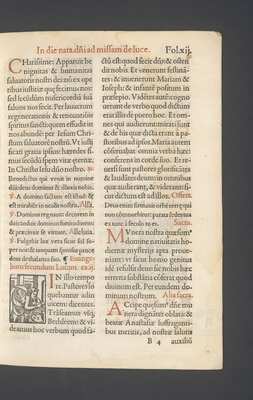 In die nata. dñi ad missam de luce. Fol.xij.
CHarissime: Apparuit be
nignitas & humanitas
saluatoris nostri dei: nõ ex ope
ribus iustitiæ quæ fecimus nos:
sed secũdum misericordiã suã
saluos nos fecit. Per lauacrum
regenerationis & renouatiõis
spiritus sancti: quem effudit in
nos abunde per Iesum Chri
stum saluatorẽ nostrũ. Vt iusti
ficati gratia ipsius: hæredes si
mus secũdũ spem vitæ æternæ.
In Christo Iesu dño nostro.
Benedictus qui venit in nomine
dñi: deus dominus & illuxit nobis.
A domino factum est istud: &
est mirabile in oculis nostris. Alla.
Dominus regnauit: decorem in
duit: induit dominus fortitudinem:
& præcinxit se virtute. Alleluia.
Euange
lium secundum Lucam.
IN illo tempo
re: Pastores lo
quebantur adin
uicem: dicentes:
Trãseamus vsq;
Bethleem: & vi
deamus hoc verbum quod fa-
ctũ est: quod fecit dñs: & osten
dit nobis. Et venerunt festinã
tes: & inuenerunt Mariam &
Ioseph: & infantẽ positum in
præsepio. Vidẽtes autẽ: cogno
uerunt de verbo quod dictum
erat illis de puero hoc. Et om-
nes qui audierunt mirati sunt:
& de his quæ dicta erant a pa
storibus ad ipsos. Maria autem
cõseruabat omnia verba hæc:
conferens in corde suo. Et re
uersi sunt pastores glorificãtes
& laudãtes deum: in omnibus
quæ audierant, & viderant: si-
cut dictum est ad illos. Offert.
Deus enim firmauit orbẽ terræ qui
non cõmouebitur: parata sedes tua
ex tunc: a seculo tu es. Sacra.
MVnera nostra quæsum⁹
domine natiuitatis ho-
diernæ mysteriis apta proue
niant: vt sicut homo genitus
idẽ refulsit deus: sic nobis hæc
terrena substãtia cõferat quod
diuinum est. Per eundem do-
minum nostrum. Alia sacra.
ACcipe quæsum⁹ dñe mu
nera dignãter oblata: &
beatæ Anastasiæ suffraganti-
bus meritis, ad nostræ salutis
B 4 auxiliũ